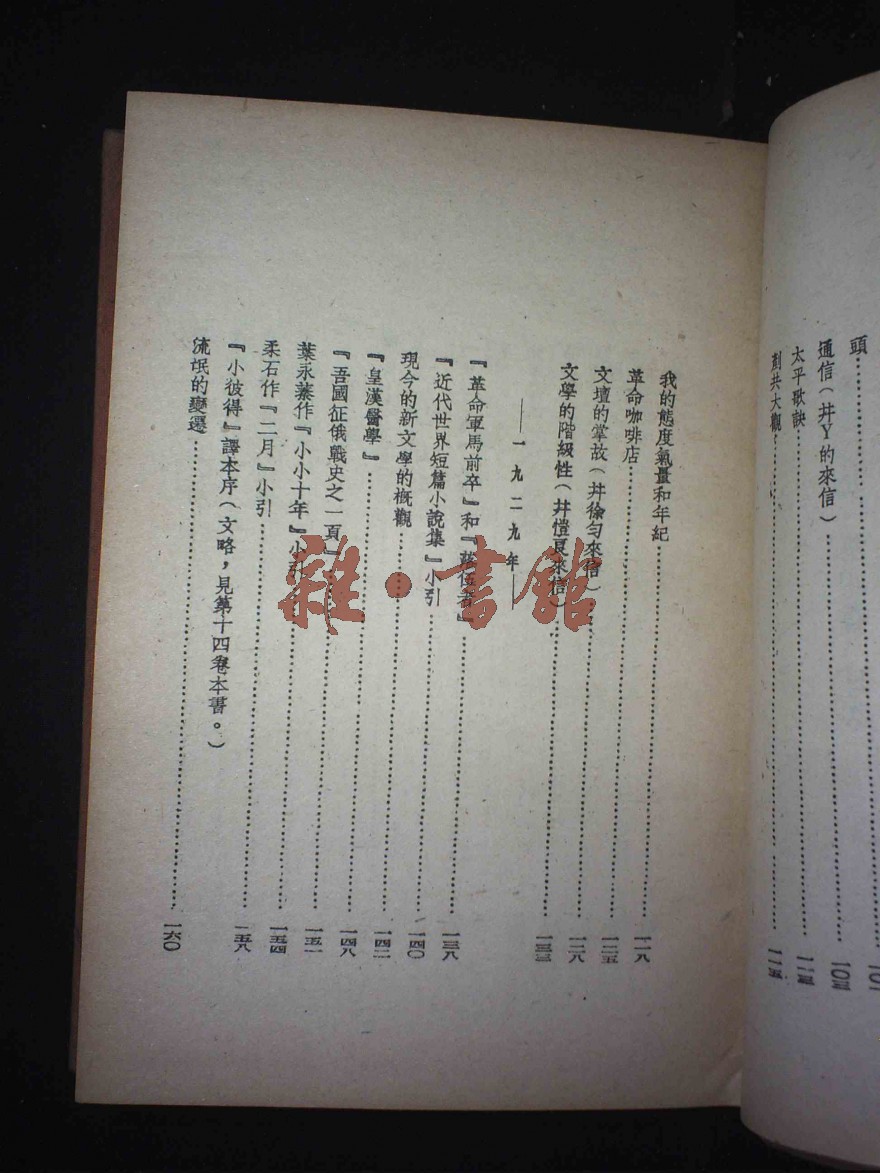 頭
通信（幷Y的來信）
太平歌訣
剷共大觀
我的態度氣量和年紀……一一八
革命咖啡店……一二五
文壇的掌故（幷徐匀來信）……一二八
文學的階級性（幷愷良來信）……一三三
——一九二九年——
『革命軍馬前卒』和『落伍者』……一三八
『近代世界短篇小說集』小引……一四〇
現今的新文學的槪觀……一四二
『皇漢醫學』……一四八
『吾國征俄戰史之一頁』……一五一
葉永蓁作『小小十年』小引……一五四
柔石作『二月』小引……一五八
『小彼得』譯本序（文略，見第十四卷本書。）
流氓的變遷……一六〇
雜·書館